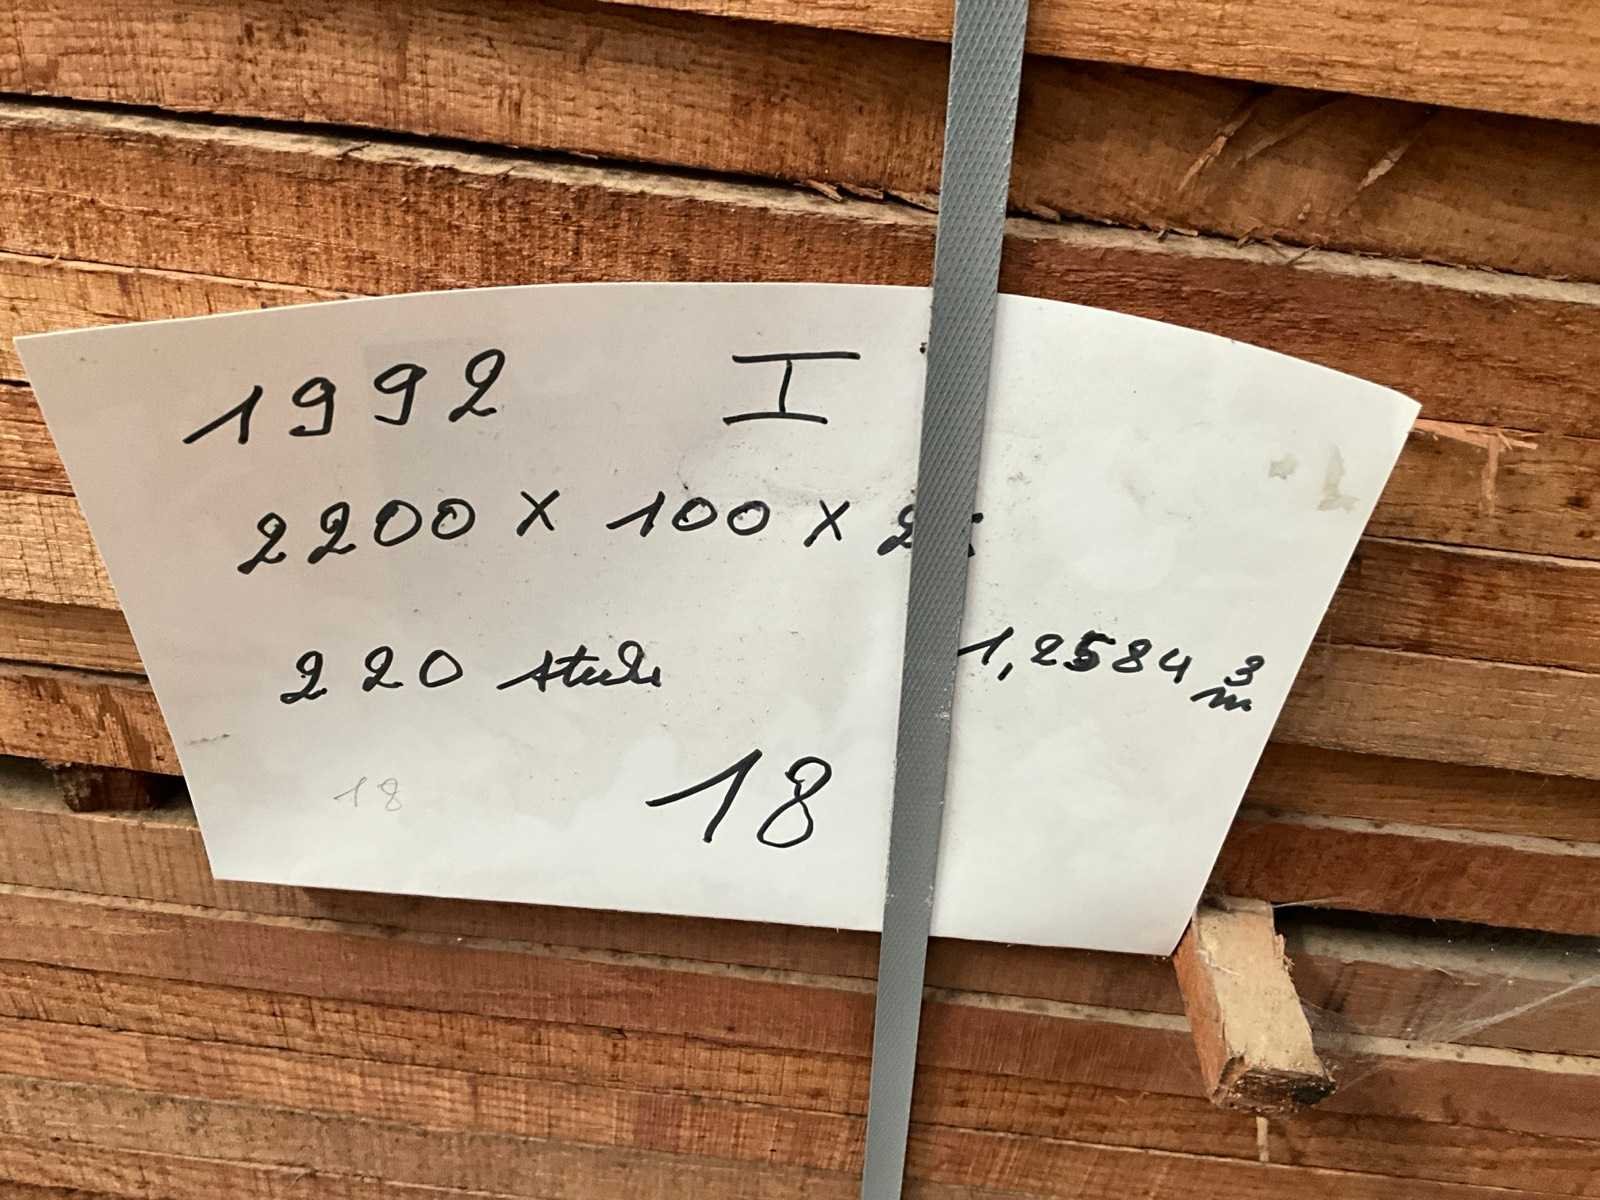 1992 I
2200 x 100 x
220 stuks 1,2584 m³
18
18